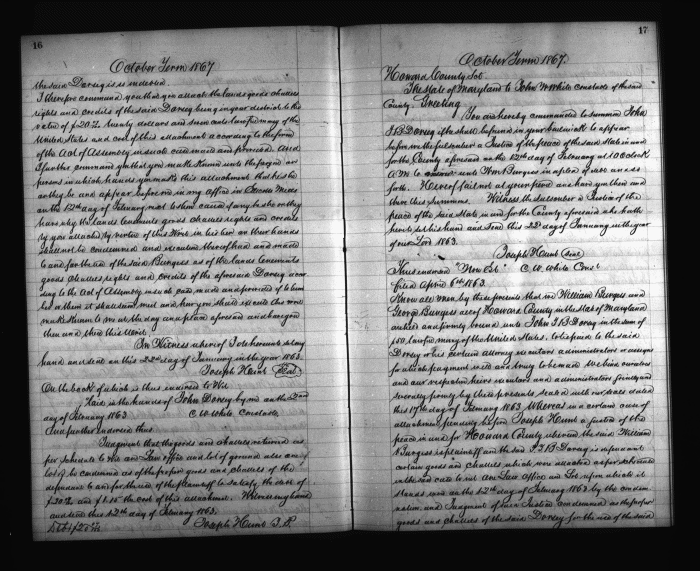 16
October Term 1867
the said Dorsey is indebted.
I therefore command you that you attach the lands goods chattels
rights and credits of the said Dorsey being in your district to the
value of $20.72 twenty dollars and seven cents lawful money of the
United States and cost of this attachment according to the form
of the Act of Assembly in such case made and provided. And
I further command you that you make known unto the person or
persons in which hands you make this attachment that he she
or they be and appear before me in my office in
on the 12th day of February next to shew cause if any he she or they
have why the lands tenements goods chattels rights and credits
by you attached by virtue of this Writ in his her or their hands
shall not be condemned and execution thereof had and made
to and for the use of the said Burgess as of the lands tenements
goods chattels rights and credits of the aforesaid Dorsey accor
ding to the Act of Assembly in such case made and provided if to him
her or them it shall seem meet and how you shall execute this writ
make known to me at the day and place aforesaid and have you
then and there this Writ.
In Witness whereof I do hereunto set my
hand and seal on this 22nd day of January in the year 1863.
Joseph Hunt (Seal)
On the back of which is thus indorsed to Wit
Laid in the hands of John Dorsey by me on the 2nd
day of February 1863 C. W. White Constable
And further indorsed thus.
Judgment that the goods and chattels returned as
per schedule to Wit one Law office and lot of ground also one
lot of to be condemned as of the proper goods and chattels of the
defendant to and for the use of the plaintiff to satisfy the debt of
$20.72 and $1.15 the cost of this attachment. Witness my hand
and seal this 12th day of February 1863.
Joseph Hunt J. P.
17
October Term 1867.
Howard County Sct.
The State of Maryland to John W White constable of the said
County Greeting
You are hereby commanded to summon John
T B Dorsey if he shall be found in your bailiwick to appear
before me the subscriber a Justice of the peace of the said State in and
for the County aforesaid on the 12th day of February at 10 Oclock
A.M. to answer unto Wm Burgess in a plea of debt and so
forth. Hereof fail not at your peril and have you then and
there this summons. Witness the subscriber a Justice of the
peace of the said State in and for the County aforesaid who hath
hereto set his hand and Seal this 22nd day of January in the year
of our Lord 1863.
Joseph Hunt (Seal)
Thus indorsed "Non Est" C. W. White Const
filed April 6th 1863.
Know all men by these presents that we William Burgess and
George Burgess all of Howard County in the State of Maryland
are held and firmly bound unto John T B Dorsey in the sum of
lawful money of the United States, to be paid to the said
Dorsey or his certain attorney executors administrators or assigns
for which payment well and truly to be made we bind ourselves
and our respective heirs executors and administrators jointly and
severally firmly by these presents sealed with our seals dated
this 17th day of February 1863. Whereas in a certain case of
attachment pending before Joseph Hunt a Justice of the
peace in and for Howard County wherein the said William
Burgess is plaintiff and the said J T B Dorsey is defendant
certain goods and chattels which were attached as per schedule
in the said case to wit one Law Office and Lot upon which it
stands were on the 12th day of February 1863 by the condem
nation and Judgment of said Justice condemned as the proper
goods and chattels of the said Dorsey for the use of the said